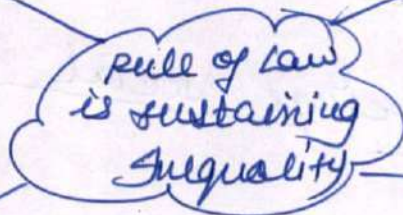 Rule of Law
is sustaining
Inequality